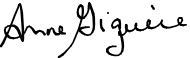 Anne Giguère